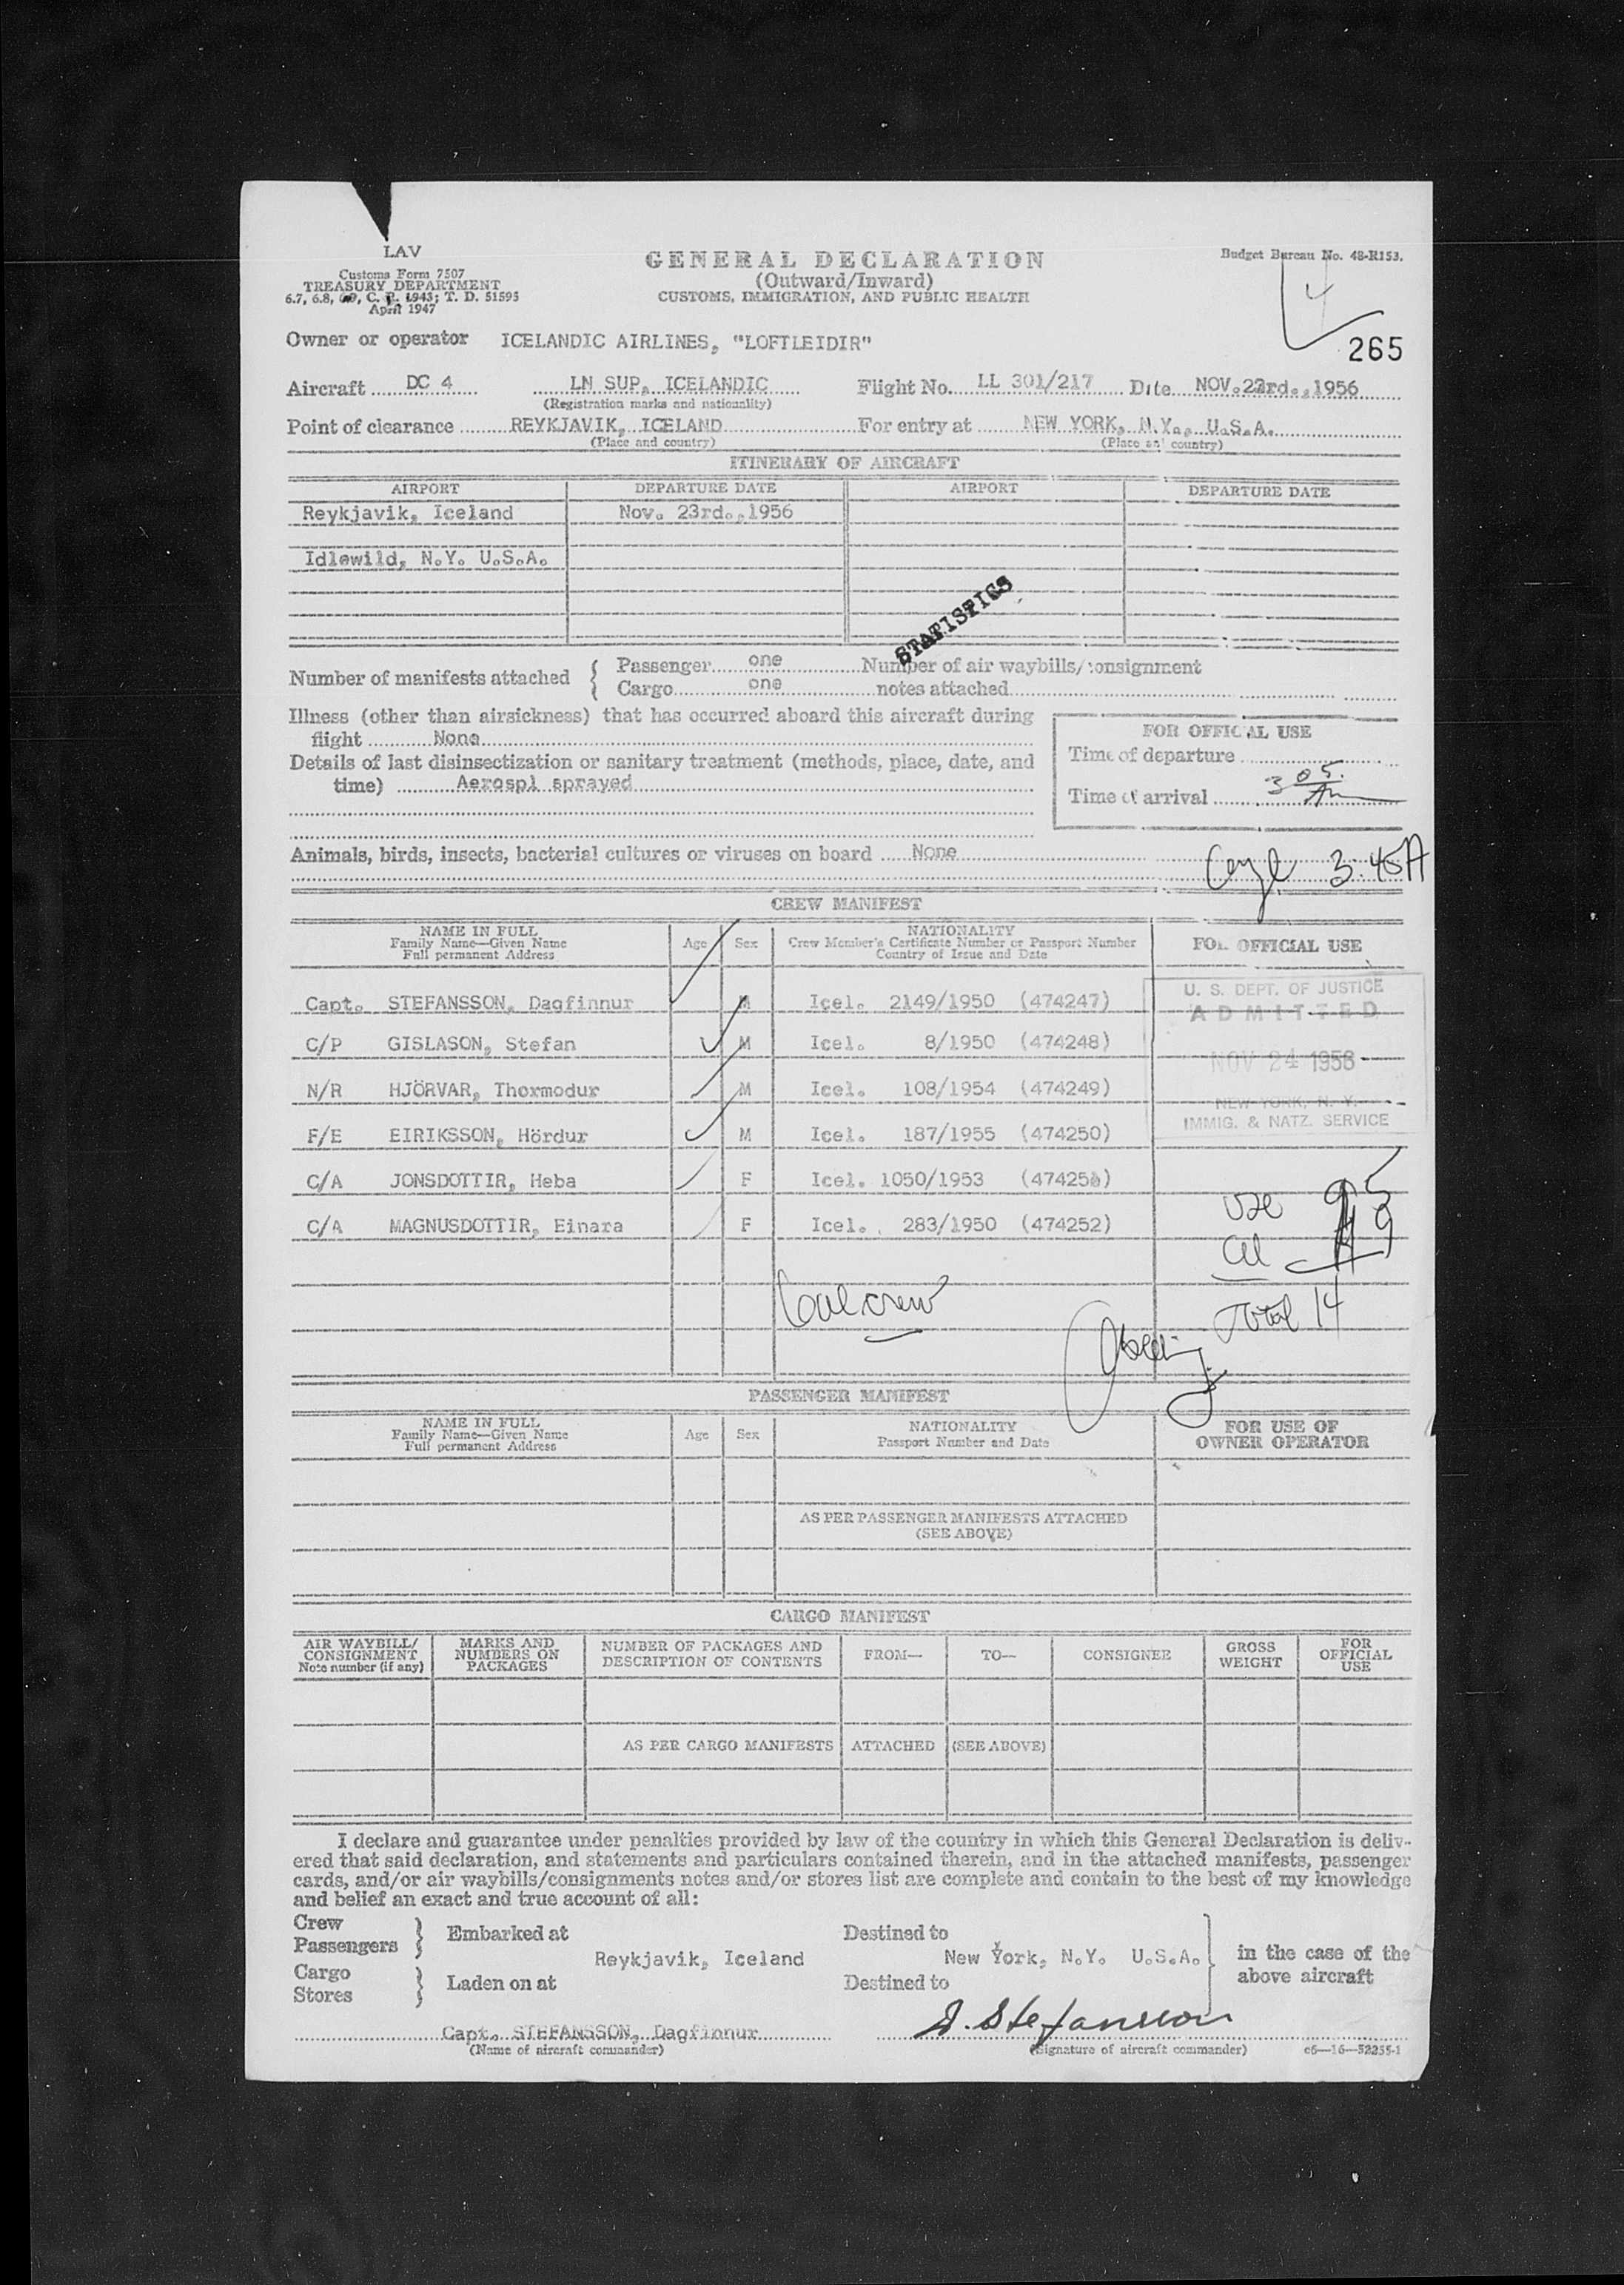 LAV
Customs Form 7507
TREASURY DEPARTMENT
6.7, 6.8, C. R. 1943; T. D. 51595
April 1947
GENERAL DECLARATION
(Outward/Inward)
CUSTOMS, IMMIGRATION, AND PUBLIC HEALTH
Budget Bureau No. 48-R153.
4
265
Owner or operator ICELANDIC AIRLINES, "LOFTLEIDIR"
Aircraft DC 4 LN SUP, ICELANDIC Flight No. LL 301/217 Date NOV. 23rd., 1956
(Registration marks and nationality)
Point of clearance REYKJAVIK, ICELAND For entry at NEW YORK, N.Y., U.S.A.
(Place and country) (Place and country)
ITINERARY OF AIRCRAFT
AIRPORT DEPARTURE DATE AIRPORT DEPARTURE DATE
Reykjavik, Iceland Nov. 23rd.,1956
Idlewild, N.Y. U.S.A.
STATISTICS
Number of manifests attached { Passenger one Number of air waybills/consignment
Cargo one notes attached
Illness (other than airsickness) that has occurred aboard this aircraft during
flight None
Details of last disinsectization or sanitary treatment (methods, place, date, and
time) Aerospl sprayed
FOR OFFICIAL USE
Time of departure
Time of arrival 3 05 Am
Animals, birds, insects, bacterial cultures or viruses on board None
3:45A
CREW MANIFEST
NAME IN FULL
Family Name—Given Name
Full permanent Address
Age Sex
NATIONALITY
Crew Member's Certificate Number or Passport Number
Country of Issue and Date
FOR OFFICIAL USE
Capt. STEFANSSON, Dagfinnur M Icel. 2149/1950 (474247)
C/P GISLASON, Stefan M Icel. 8/1950 (474248)
N/R HJÖRVAR, Thormodur M Icel. 108/1954 (474249)
F/E EIRIKSSON, Hördur M Icel. 187/1955 (474250)
C/A JONSDOTTIR, Heba F Icel. 1050/1953
C/A MAGNUSDOTTIR, Einara F Icel. 283/1950 (474252)
U. S. DEPT. OF JUSTICE
ADMITTED
NOV 24 1956
NEW YORK, N. Y.
IMMIG. & NATZ. SERVICE
crew
Total 14
PASSENGER MANIFEST
NAME IN FULL
Family Name—Given Name
Full permanent Address
Age Sex
NATIONALITY
Passport Number and Date
FOR USE OF
OWNER OPERATOR
AS PER PASSENGER MANIFESTS ATTACHED
(SEE ABOVE)
CARGO MANIFEST
AIR WAYBILL/
CONSIGNMENT
Note number (if any)
MARKS AND
NUMBERS ON
PACKAGES
NUMBER OF PACKAGES AND
DESCRIPTION OF CONTENTS
FROM— TO— CONSIGNEE
GROSS
WEIGHT
FOR
OFFICIAL
USE
AS PER CARGO MANIFESTS ATTACHED (SEE ABOVE)
I declare and guarantee under penalties provided by law of the country in which this General Declaration is deliv-
ered that said declaration, and statements and particulars contained therein, and in the attached manifests, passenger
cards, and/or air waybills/consignments notes and/or stores list are complete and contain to the best of my knowledge
and belief an exact and true account of all:
Crew
Passengers } Embarked at Destined to
Reykjavik, Iceland New York, N.Y. U.S.A.
Cargo
Stores } Laden on at Destined to
in the case of the
above aircraft
Capt. STEFANSSON, Dagfinnur D. Stefansson
(Name of aircraft commander) (Signature of aircraft commander) c6—16—52255-1